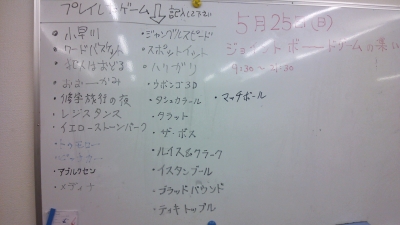 プレイしたゲーム 記入して下さい
・小早川
・ワードバスケット
・犯人はおどる
・修学旅行の夜
・レジスタンス
・イエローストーンパーク
・アブルクセン
・メディチ
・ジャングルスピード
・スポットイット
・ハリガリ
・ウボンゴ3D
・タシュカラール
・タラット
・ザ・ボス
・ルイス&クラーク
・イスタンブール
・ブラッドバウンド
・ティキトップル
・マッチボール
5月25日(日)
ジョイント ボードゲームの集い
9:30〜21:30